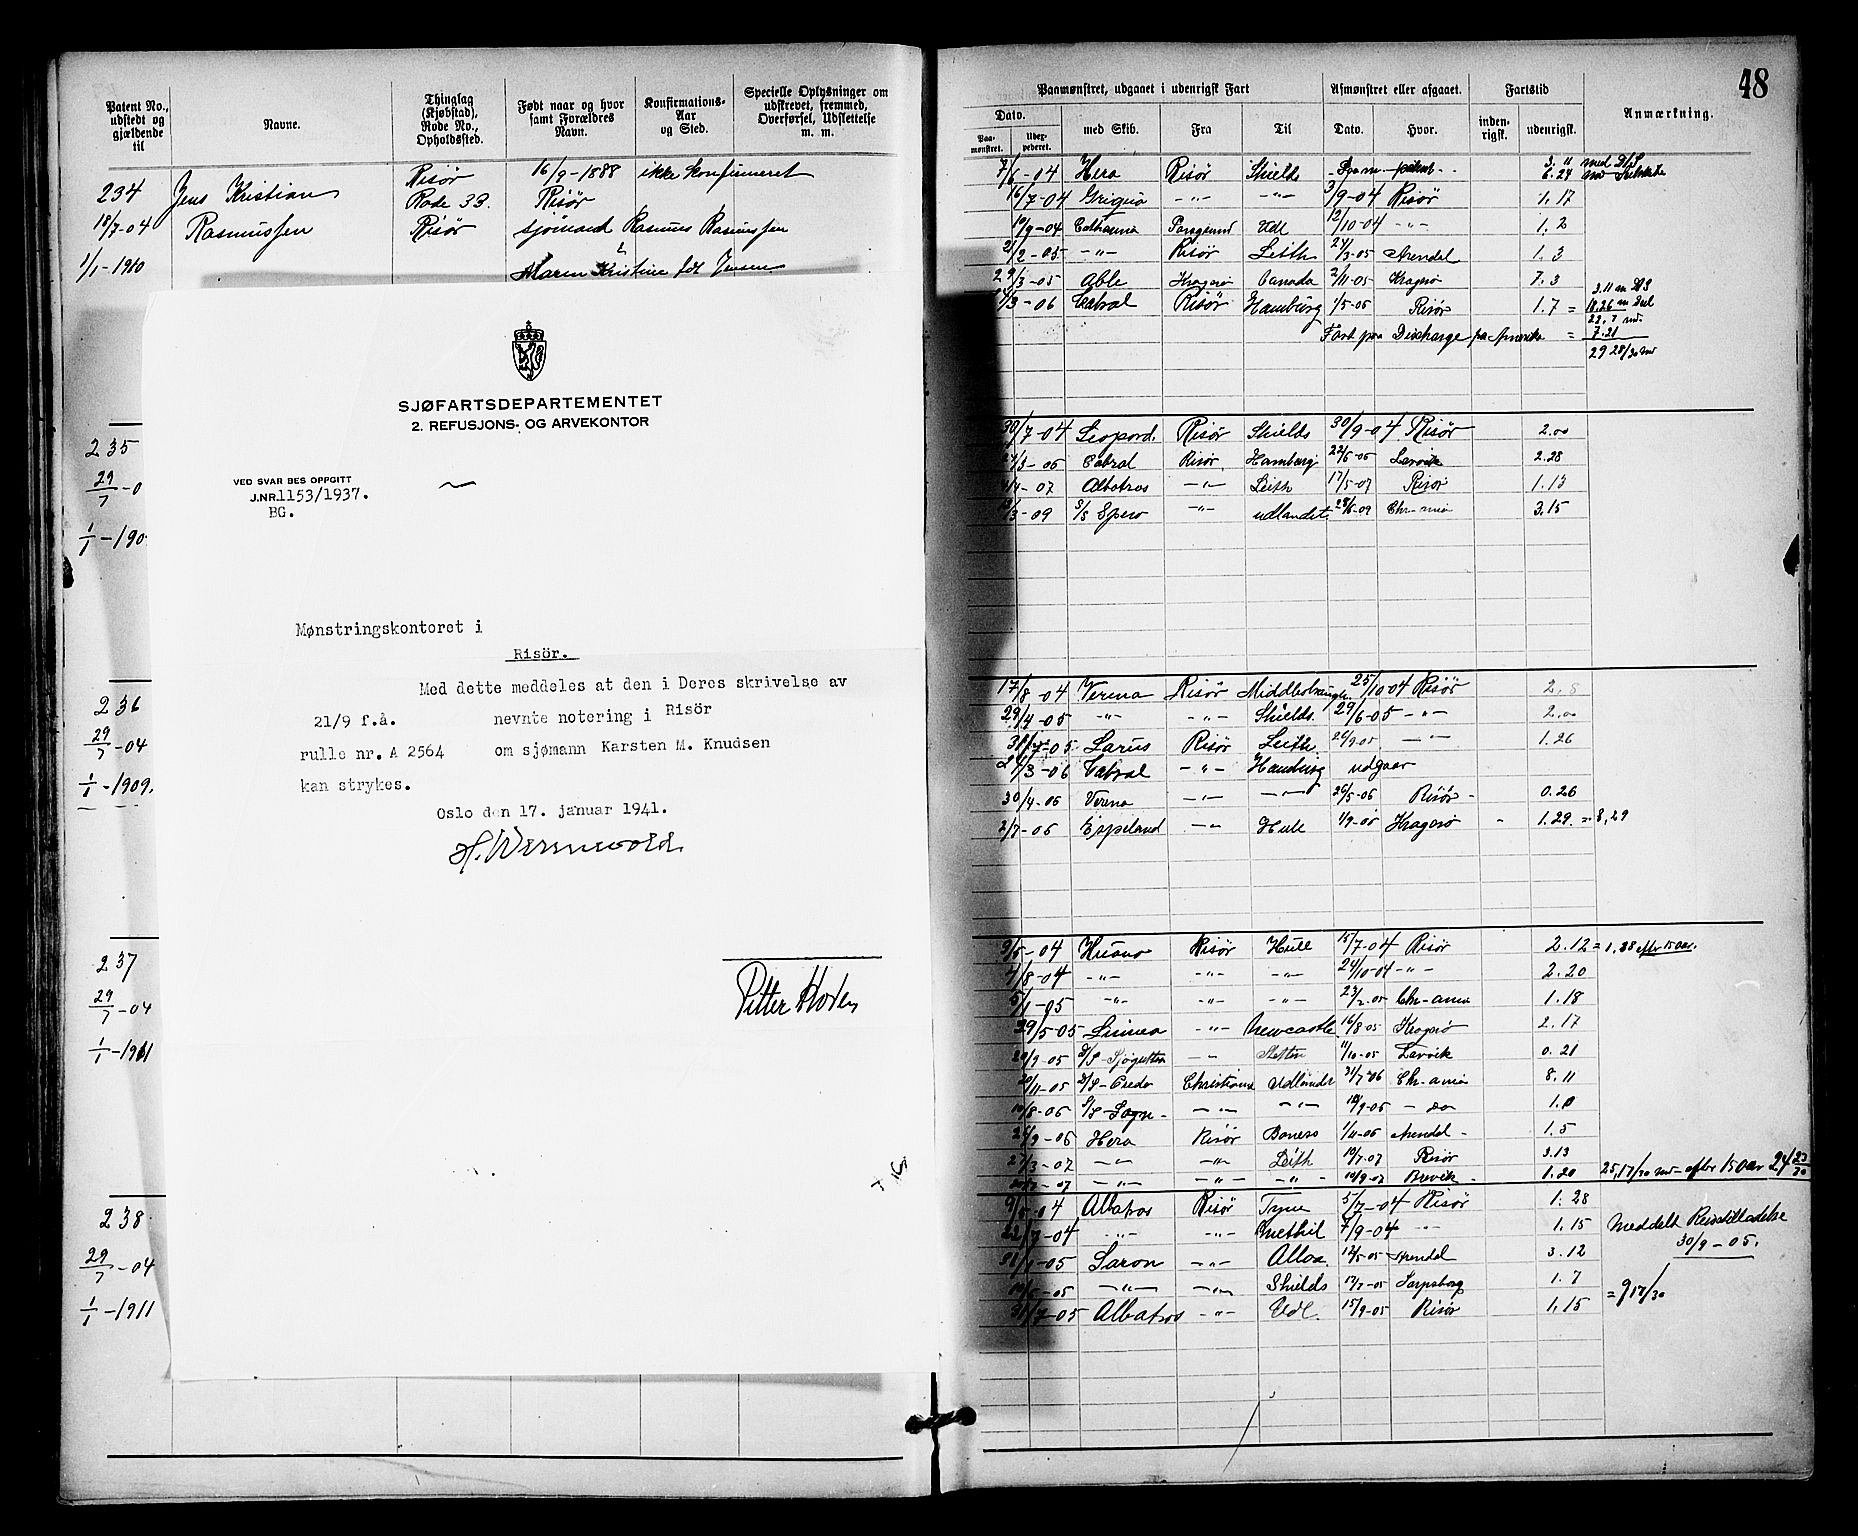 Patent No., udstedt og gjældende til
Navne.
Thinglag (Kjøbstad), Rode No., Opholdssted.
Født naar og hvor samt Forældres Navn.
Konfirmations-Aar og Sted.
Specielle Oplysninger om udskrevet, fremmed, Overførsel, Udslettelse m. m.
234
18/7-04
1/1-1910
Jens Kristian
Rasmussen
Risör
Rode 33.
Risör
16/9-1888 ikke konfirmeret
Risör
sjömand Rasmus Rasmussen
Maren Kristine fdt Jensen
235
29/7-0
1/1-190
236
29/7-04
1/1-1909.
237
29/7-04
1/1-1911
238
29/7-04
1/1-1911
SJØFARTSDEPARTEMENTET
2. REFUSJONS- OG ARVEKONTOR
VED SVAR BES OPPGITT
J.NR. 1153/1937.
BG.
Mønstringskontoret i
Risör.
Med dette meddeles at den i Deres skrivelse av
21/9 f.å. nevnte notering i Risör
rulle nr. A 2564 om sjømann Karsten M. Knudsen
kan strykes.
Oslo den 17. januar 1941.
48
Paamønstret, udgaaet i udenrigsk Fart
Afmønstret eller afgaaet.
Fartstid
Anmærkning.
Dato.
Paamønstret.
med Skib.
Fra
Til
Dato.
Hvor.
inden-rigsk.
udenrigsk.
7/6-04 Hera Risör Shields 3.11 med D/S
6.24
16/7-04 Grigua -"- -"- 3/9-04 Risör 1.17
10/9-04 Udl 12/10-04 -"- 1.2
21/2-05 -"- Risör Leith 24/3-05 Arendal 1.3
29/3-05 Able Kragerö Canada 2/11-05 Kragerö 7.3
/3-06 Cabral Risör Hamburg 1/5-06 Risör 1.7 =
3.11 m D/S
18.26
22.7 md.
Fart paa Discharge fra Amerika = 7.21
29 28/30 md
30/7-04 Leopard. Risör Shields 30/9-04 Risör 2.00
24/3-06 Cabral Risör Hamburg 22/6-06 Larvik 2.28
4/4-07 Albatros -"- Leith 17/5-07 Risör 1.13
/3-09 S/S Spero -"- udlandet 28/6-09 Chr-nia 3.15
17/8-04 Verena Risör Middlesbrough 25/10-04 Risör 2.8
29/4-05 -"- -"- Shields. 29/6-05 -"- 2.00
31/7-05 Larus Risör Leith 26/9-05 -"- 1.26
/3-06 Cabral -"- Hamburg udgaar
30/4-06 Verena -"- -"- 26/5-06 Risör - 0.26
2/7-06 Espeland -"- Hull 1/9-06 Kragerö " 1.29. = 8,29
9/5-04 Risör Hull 15/7-04 Risör 2.12 = 1,28 efter 15 aar.
4/8-04 -"- -"- -"- 24/10-04 -"- 2.20
5/1-05 -"- -"- -"- 23/2-05 Chr-ania 1.18
29/5-05 Linnea -"- Newcastle 16/8-05 Kragerö 2.17
20/9-05 -"- Stettin 11/10-05 Larvik 0.21
20/11-05 Christiania Udlandet 31/7-06 Ch-ania 8.11
10/8-06 S/S-Sogn- -"- -"- 10/9-06 -do 1.0
26/9-06 Hera Risör Boness 1/11-06 Arendal- 1.5
27/3-07 -"- -"- Leith 10/7-07 Risör 3.13
-07 -"- -"- -"- 10/9-07 Brevik- 1.20 25,17/30 md- efter 15 aar 24 23/30
9/5-04 Albatros Risör Tyne 5/7-04 Risör 1.28
22/7-04 -"- -"- Methil 7/9-04 -"- 1.15 Meddelt Reisetilladelse
30/9-05.
31/1-05 Saron -"- Alloa 12/5-05 Arendal 3.12
/5-05 -"- -"- Shields 17/7-05 Sarpsborg 1.7
= 9 17/30
31/7-05 Albatros -"- Udl. 15/9-05 Risör 1.15